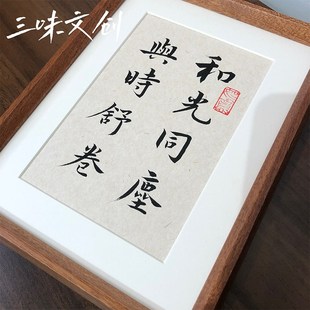 三味文创
和光同塵
與時舒卷